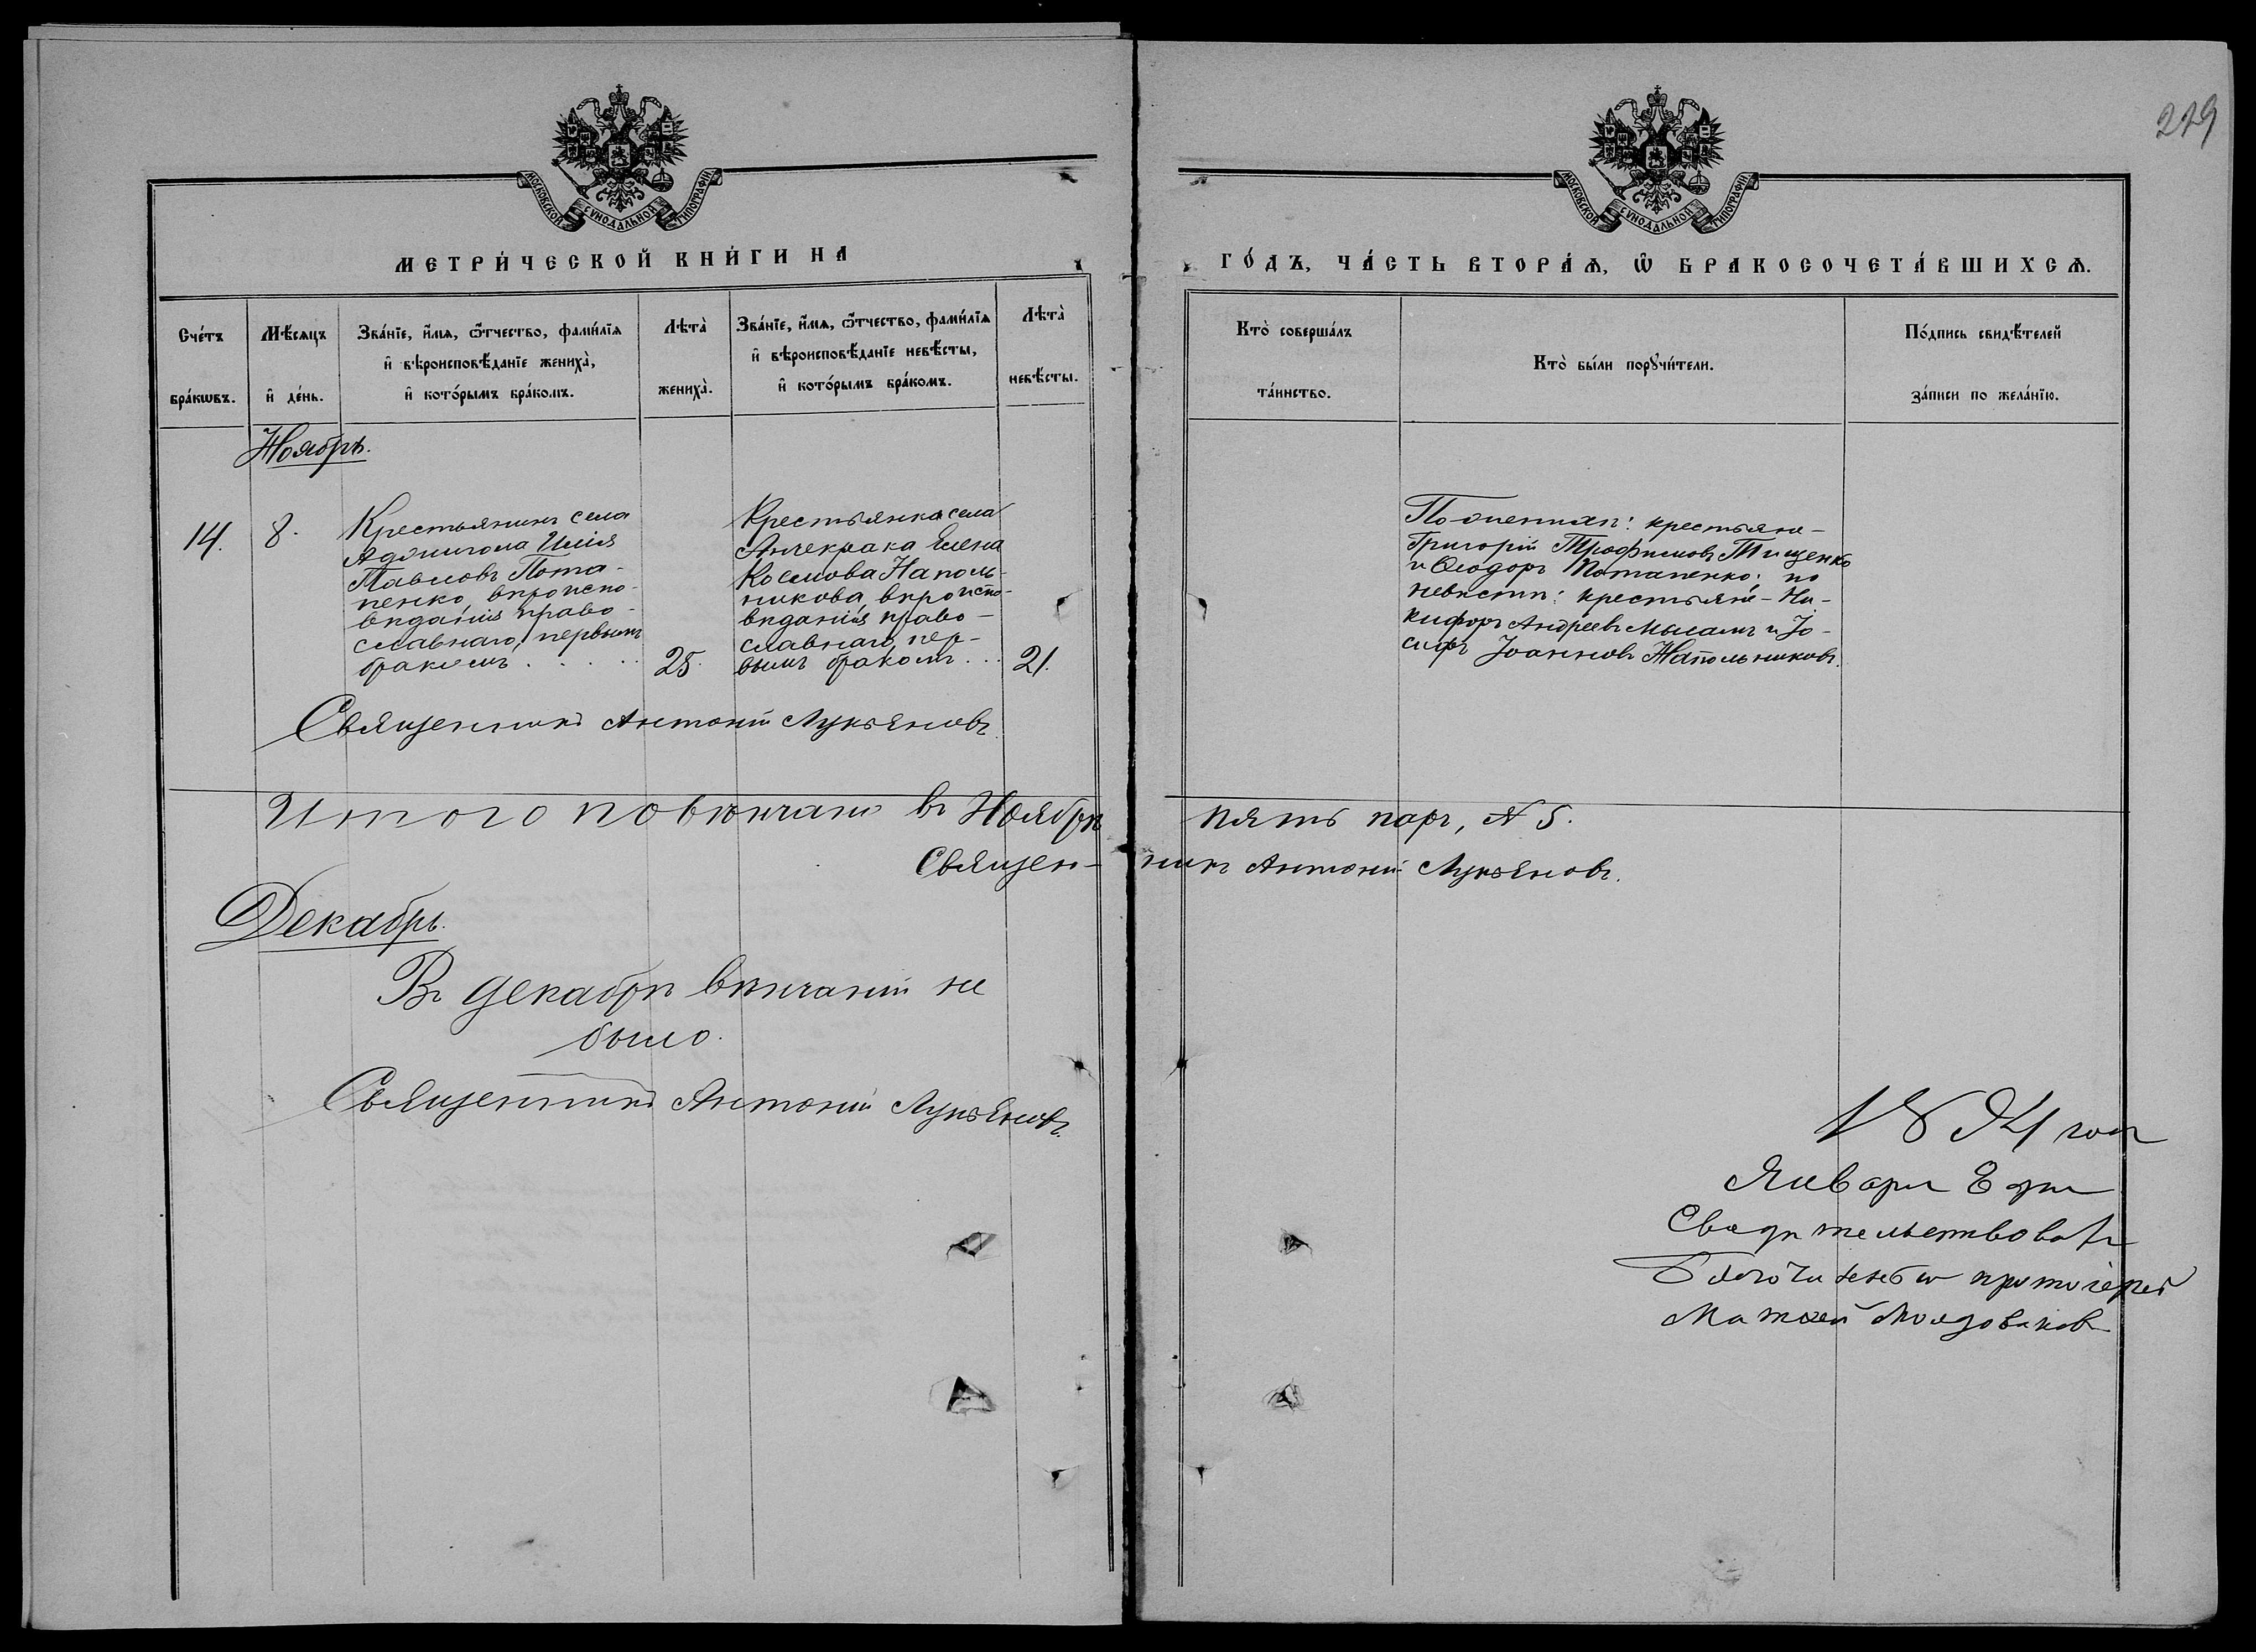 219
МОСКОВСКОЙ СѴНОДАЛЬНОЙ ТИПОГРАФІИ
МОСКОВСКОЙ СѴНОДАЛЬНОЙ ТИПОГРАФІИ
МЕТРИ́ЧЕСКОЙ КНИ́ГИ НА
ГО́ДЪ, ЧА́СТЬ ВТОРА́Ѧ, Ѡ҆ БРАКОСОЧЕТА́ВШИХСѦ.
Сче́тъ бра́кѡвъ.
Мѣ́сѧцъ и҆ де́нь.
Зва́нїе, и҆́мѧ, ѻ҆́тчество, фами́лїѧ
и҆ вѣроисповѣ́данїе жениха̀,
и҆ кото́рымъ бра́комъ.
Лѣта̀ жениха̀.
Зва́нїе, и҆́мѧ, ѻ҆́тчество, фами́лїѧ
и҆ вѣроисповѣ́данїе невѣ́сты,
и҆ кото́рымъ бра́комъ.
Лѣта̀ невѣ́сты.
Кто̀ соверша́лъ
та́инство.
Кто̀ бы́ли порꙋчи́тели.
По́дпись свидѣ́телей
за́писи по жела́нїю.
Ноябрь.
14.
8.
Крестьянинъ села
Аджигола Илія
Павловъ Пота-
пенко, вѣроиспо-
вѣданія право-
славнаго, первымъ
бракомъ . . . .
25.
Крестьянка села
Анчекрака Елена
Космова Наполь-
никова вѣроиспо-
вѣданія право-
славнаго, пер-
вымъ бракомъ . . .
21.
По женихѣ: крестьяне-
Григорій Трофимовъ Тищенко
и Ѳеодоръ Потапенко; по
невѣстѣ: крестьяне - Ни-
кифоръ Андреевъ и Іо-
сифъ Іоанновъ Напольниковъ.
Священникъ Антоній Лукьяновъ
Итого повѣнчано въ Ноябрѣ пять паръ, № 5.
Священ- никъ Антоній Лукьяновъ.
Декабрь.
Въ декабрѣ вѣнчаній не
было.
Священникъ Антоній Лукьяновъ.
Января 8 дня
Свидѣтельствовалъ
протоіерей
Матѳей